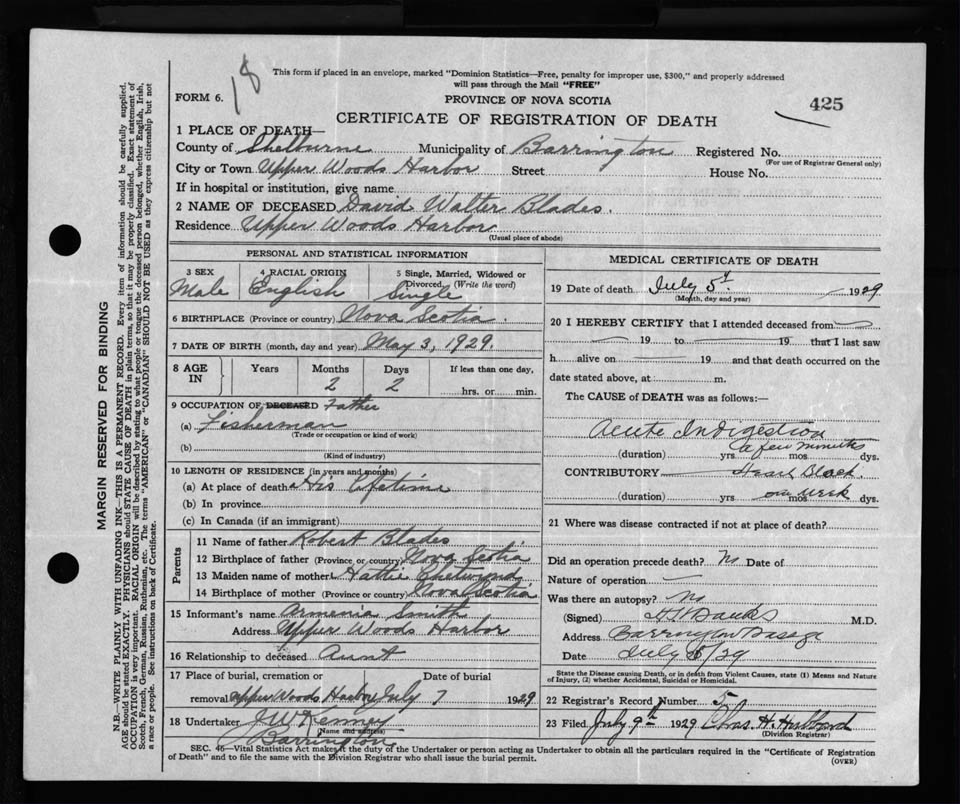 18
This form if placed in an envelope, marked "Dominion Statistics—Free, penalty for improper use, $300," and properly addressed
will pass through the Mail "FREE"
FORM 6.
PROVINCE OF NOVA SCOTIA
425
CERTIFICATE OF REGISTRATION OF DEATH
1 PLACE OF DEATH—
County of Shelburne Municipality of Barrington Registered No.
(For use of Registrar General only)
City or Town Upper Woods Harbor Street House No.
If in hospital or institution, give name
2 NAME OF DECEASED David Walter Blades.
Residence Upper Woods Harbor
(Usual place of abode)
PERSONAL AND STATISTICAL INFORMATION
3 SEX 4 RACIAL ORIGIN 5 Single, Married, Widowed or
Divorced, (Write the word)
Male English Single
6 BIRTHPLACE (Province or country) Nova Scotia.
7 DATE OF BIRTH (month, day and year) May 3, 1929.
8 AGE
IN
Years Months Days If less than one day,
2 2 hrs. or min.
9 OCCUPATION OF DECEASED Father
(a) Fisherman
(Trade or occupation or kind of work)
(b)
(Kind of industry)
10 LENGTH OF RESIDENCE (in years and months)
(a) At place of death His lifetime
(b) In province
(c) In Canada (if an immigrant)
Parents
11 Name of father Robert Blades
12 Birthplace of father (Province or country) Nova Scotia
13 Maiden name of mother Hattie
14 Birthplace of mother (Province or country) Nova Scotia
15 Informant's name Armenia Smith
Address Upper Woods Harbor
16 Relationship to deceased Aunt
17 Place of burial, cremation or Date of burial
removal Upper Woods Harbor July 7 1929
18 Undertaker J W Kenney
(Name and address)
Barrington
MEDICAL CERTIFICATE OF DEATH
19 Date of death July 5 1929
(Month, day and year)
20 I HEREBY CERTIFY that I attended deceased from
19 to 19 that I last saw
h alive on 19 and that death occurred on the
date stated above, at m.
The CAUSE of DEATH was as follows:
Acute Indigestion
a few minutes
(duration) yrs mos dys.
CONTRIBUTORY Heart Block
(duration) yrs one week mos dys.
21 Where was disease contracted if not at place of death?
Did an operation precede death? No Date of
Nature of operation
Was there an autopsy? No
(Signed) M.D.
Address Barrington Passage
Date July 5/29
State the Disease causing Death, or in death from Violent Causes, state (1) Means and Nature
of Injury, (2) whether Accidental, Suicidal or Homicidal.
22 Registrar's Record Number 5
23 Filed July 9th 1929 Chas. H. Hubbard
(Division Registrar)
SEC. 46—Vital Statistics Act makes it the duty of the Undertaker or person acting as Undertaker to obtain all the particulars required in the "Certificate of Registration
of Death" and to file the same with the Division Registrar who shall issue the burial permit.
(OVER)
MARGIN RESERVED FOR BINDING
N.B.—WRITE PLAINLY WITH UNFADING INK—THIS IS A PERMANENT RECORD. Every item of information should be carefully supplied.
AGE should be stated EXACTLY. PHYSICIANS should STATE CAUSE OF DEATH in plain terms, so that it may be properly classified. Exact statement of
OCCUPATION is very important. RACIAL ORIGIN will be described by stating to what people or tongue the deceased person belonged, whether English, Irish,
Scotch, French, German, Russian, Ruthenian, etc. The terms "AMERICAN" or "CANADIAN" SHOULD NOT BE USED as they express citizenship but not
a race or people. See instructions on back of Certificate.